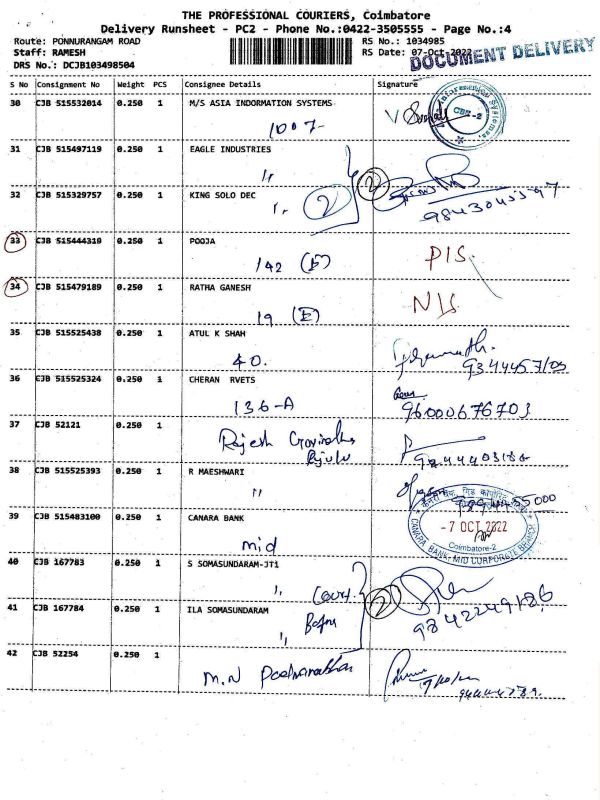 THE PROFESSIONAL COURIERS, Coimbatore
Delivery Runsheet - PC2 - Phone No.:0422-3505555 - Page No.:4
Route: PONNURANGAM ROAD
Staff: RAMESH
DRS No.: DCJB103498504
RS No.: 1034985
RS Date: 07-Oct-2022
DOCUMENT DELIVERY
S No Consignment No Weight PCS Consignee Details Signature
30 CJB 515532014 0.250 1 M/S ASIA INDORMATION SYSTEMS
1007
CBE-2
31 CJB 515497119 0.250 1 EAGLE INDUSTRIES
32 CJB 515329757 0.250 1 KING SOLO DEC
2
2
33 CJB 515444319 0.250 1 POOJA
142 (E)
34 CJB 515479189 0.250 1 RATHA GANESH
19 (E)
35 CJB 515525438 0.250 1 ATUL K SHAH
40.
36 CJB 515525324 0.250 1 CHERAN RVETS
136-A
9600676703
37 CJB 52121 0.250 1
Rajesh
38 CJB 515525393 0.250 1 R MAESHWARI
39 CJB 515483100 0.250 1 CANARA BANK
mid
- 7 OCT 2022
Coimbatore-2
CANARA BANK, MID CORPORATE BRANCH
40 CJB 167783 0.250 1 S SOMASUNDARAM-JT1
41 CJB 167784 0.250 1 ILA SOMASUNDARAM
2
9842249186
42 CJB 52254 0.250 1
M.N